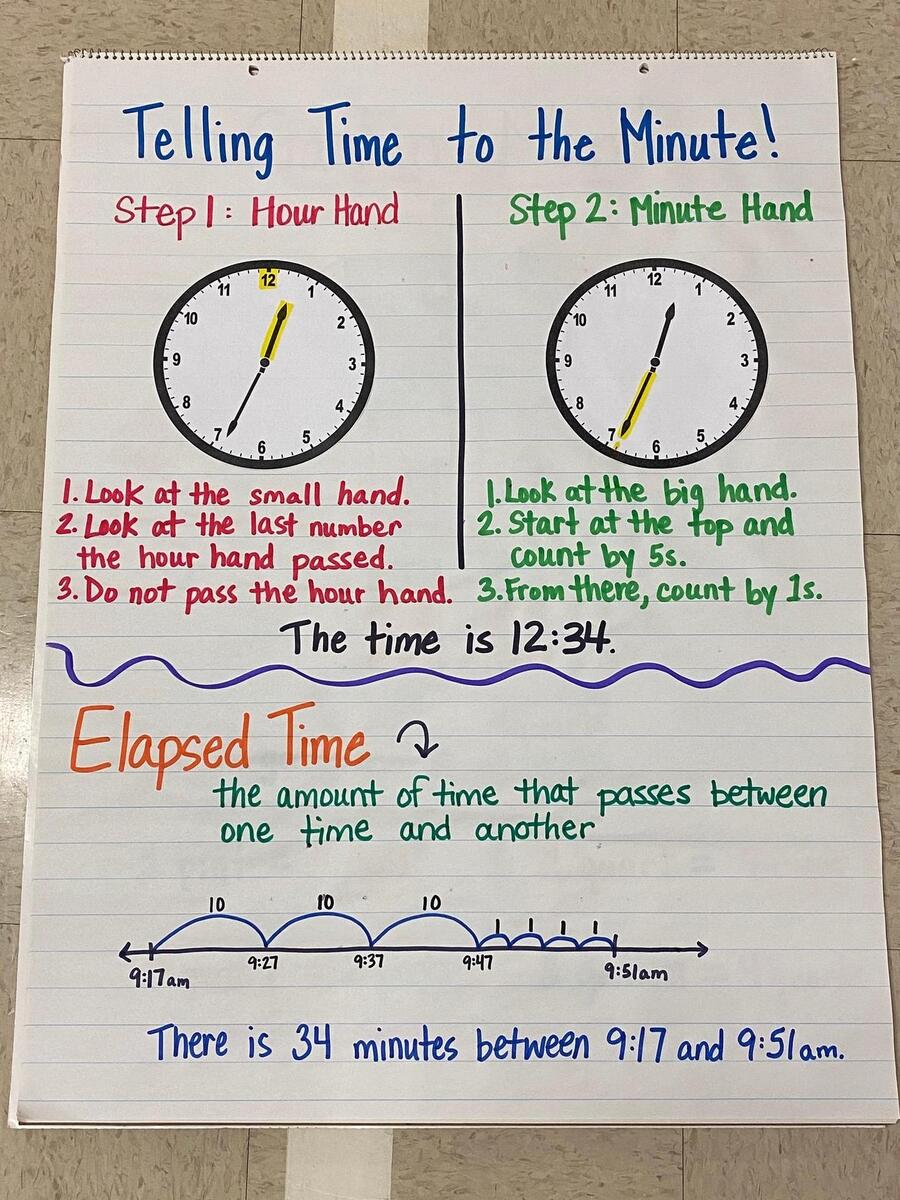 Telling Time to the Minute!
Step 1: Hour Hand
12
1
2
3
4
5
6
7
8
9
10
11
1. Look at the small hand.
2. Look at the last number
the hour hand passed.
3. Do not pass the hour hand.
Step 2: Minute Hand
12
1
2
3
4
5
6
7
8
9
10
11
1. Look at the big hand.
2. Start at the top and
count by 5s.
3. From there, count by 1s.
The time is 12:34.
Elapsed Time
the amount of time that passes between
one time and another
10 10 10 1 1 1 1
9:17am 9:27 9:37 9:47 9:51am
There is 34 minutes between 9:17 and 9:51am.